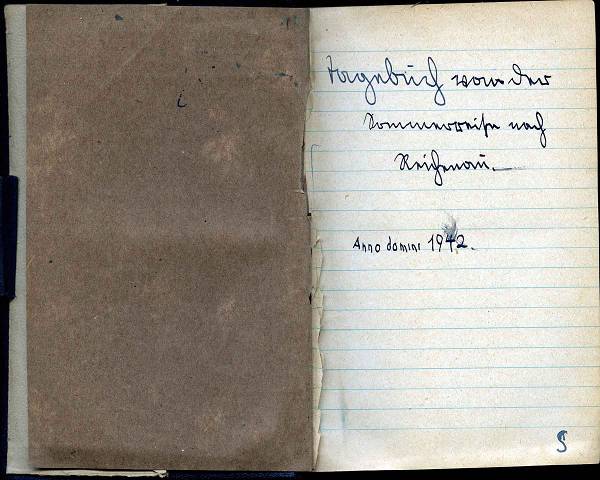 Tagebuch von der
Sommerreise nach
Reichenau.
Anno domini 1942.
S